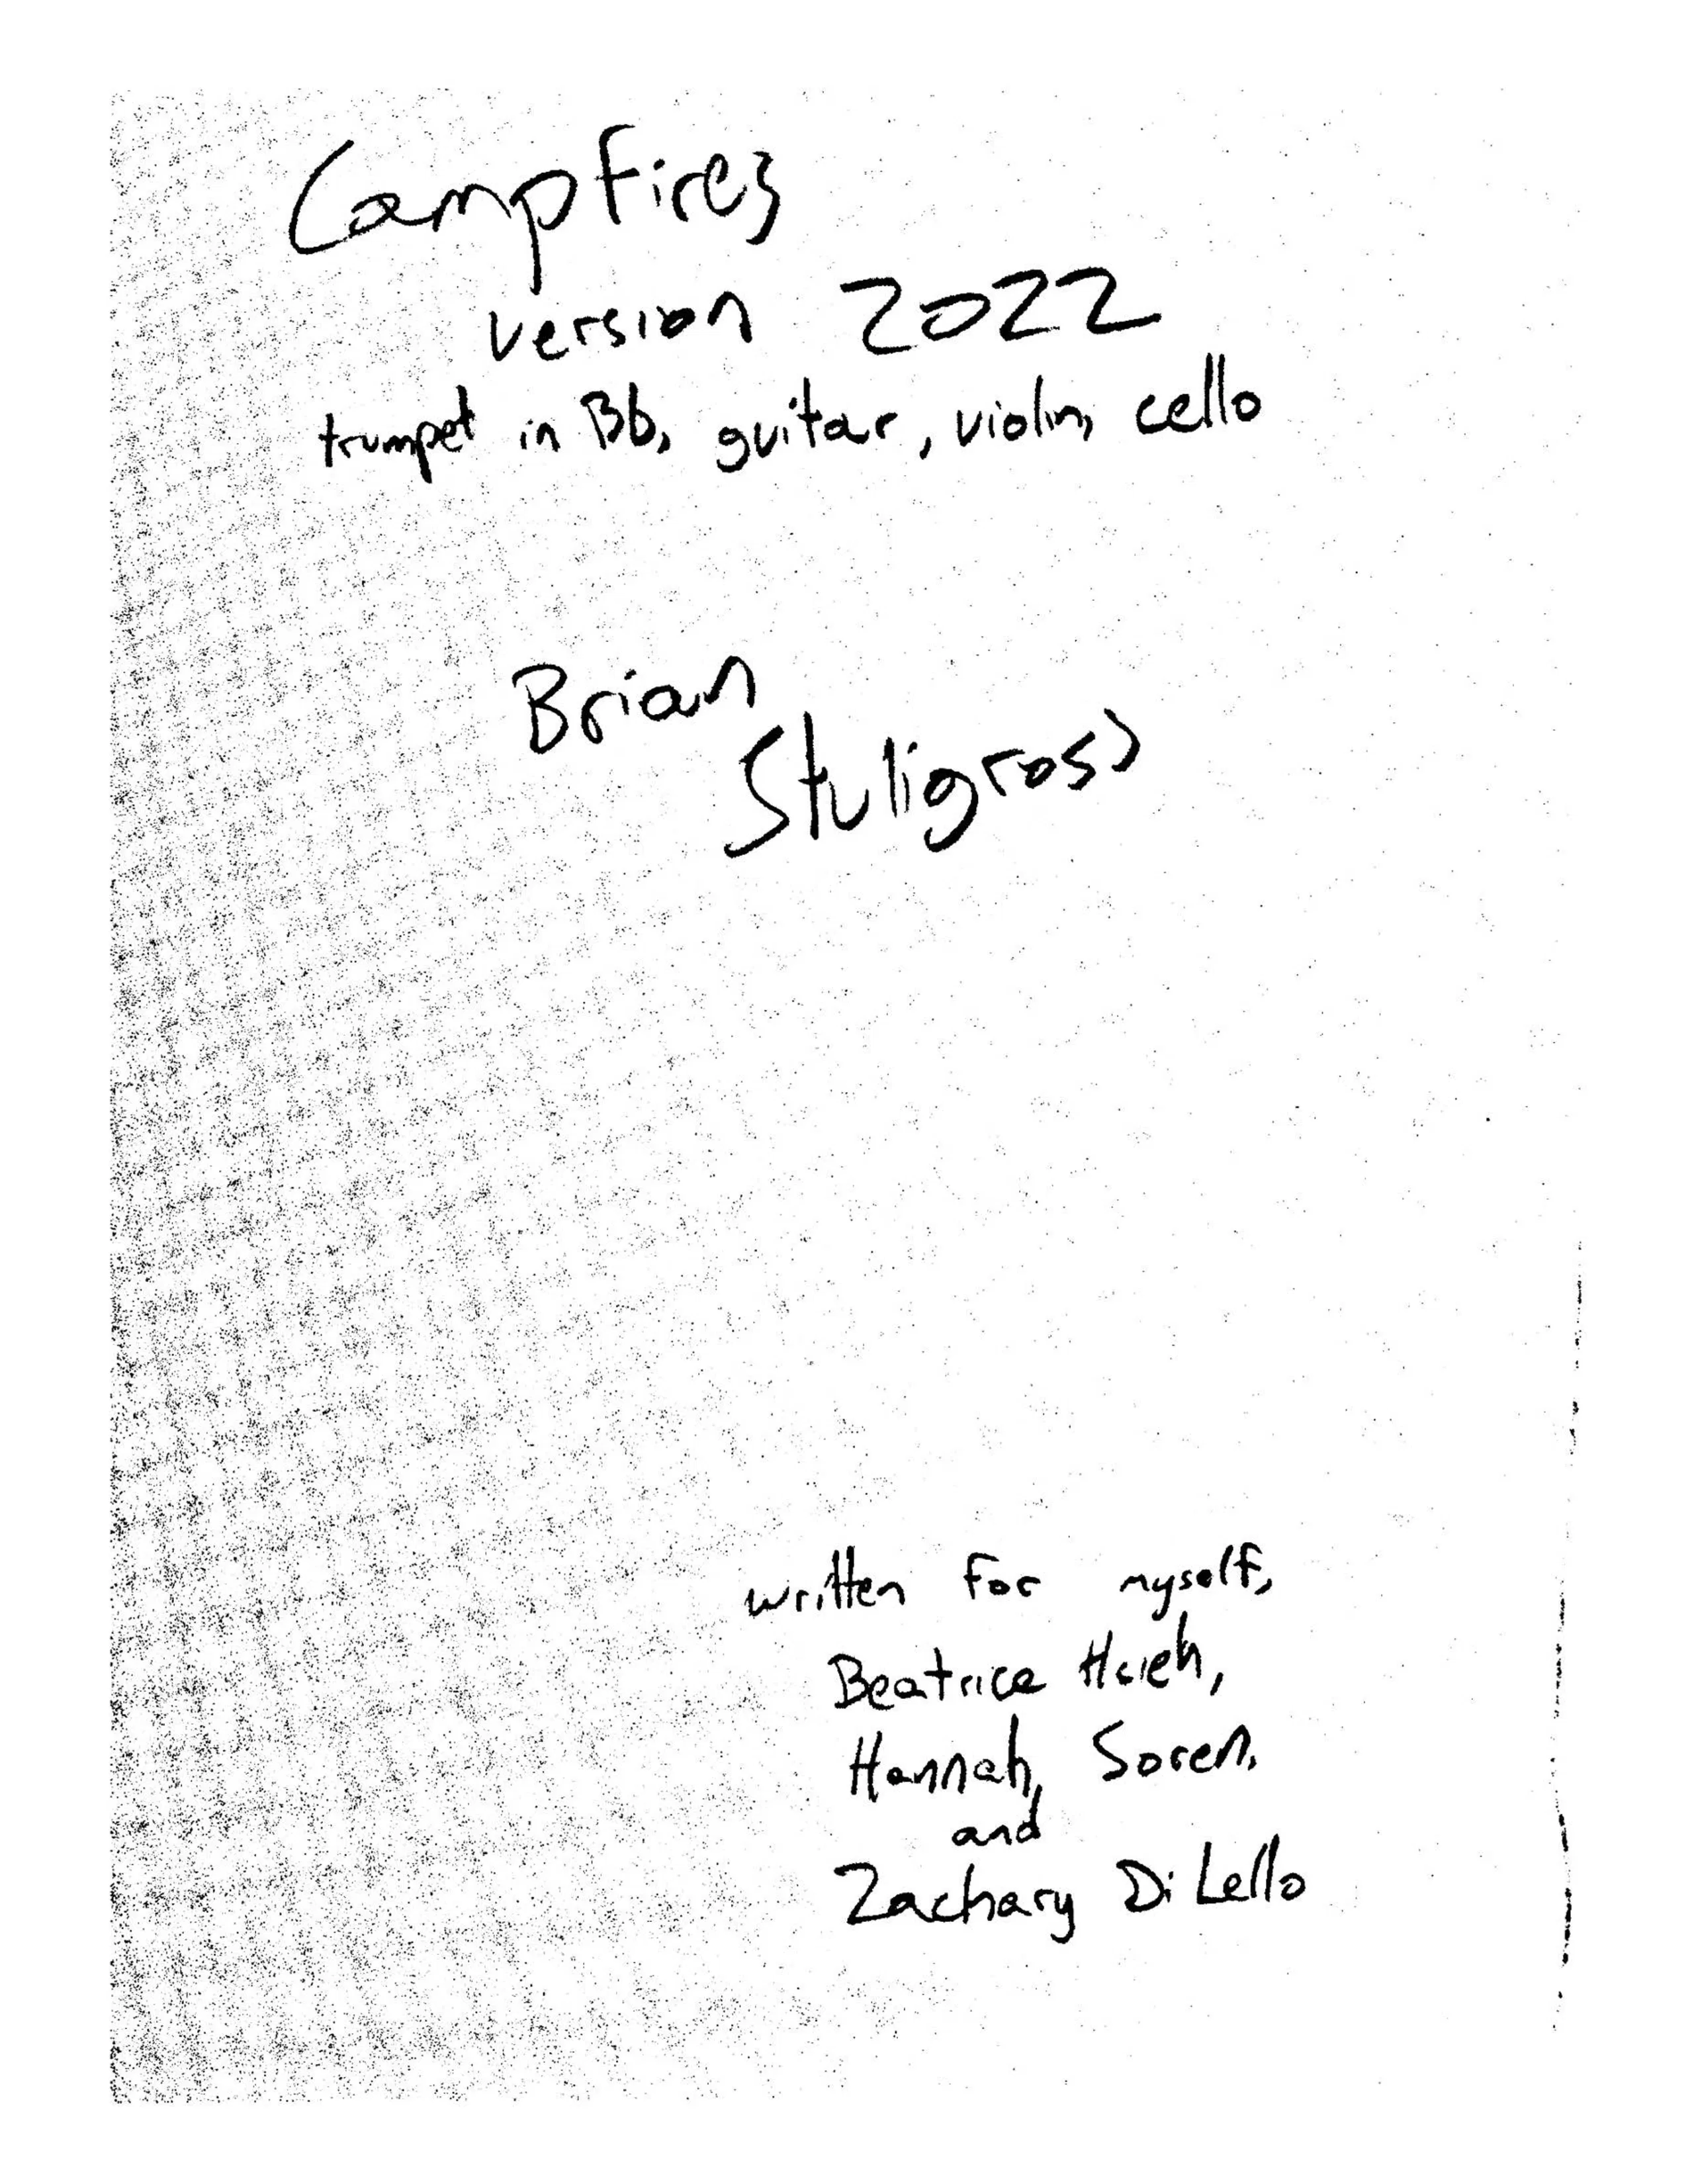 Campfires
version 2022
trumpet in Bb, guitar, violin, cello
Brian
Stuligross
written for myself,
Beatrice Hsieh,
Hannah, Soren,
and
Zachary DiLello